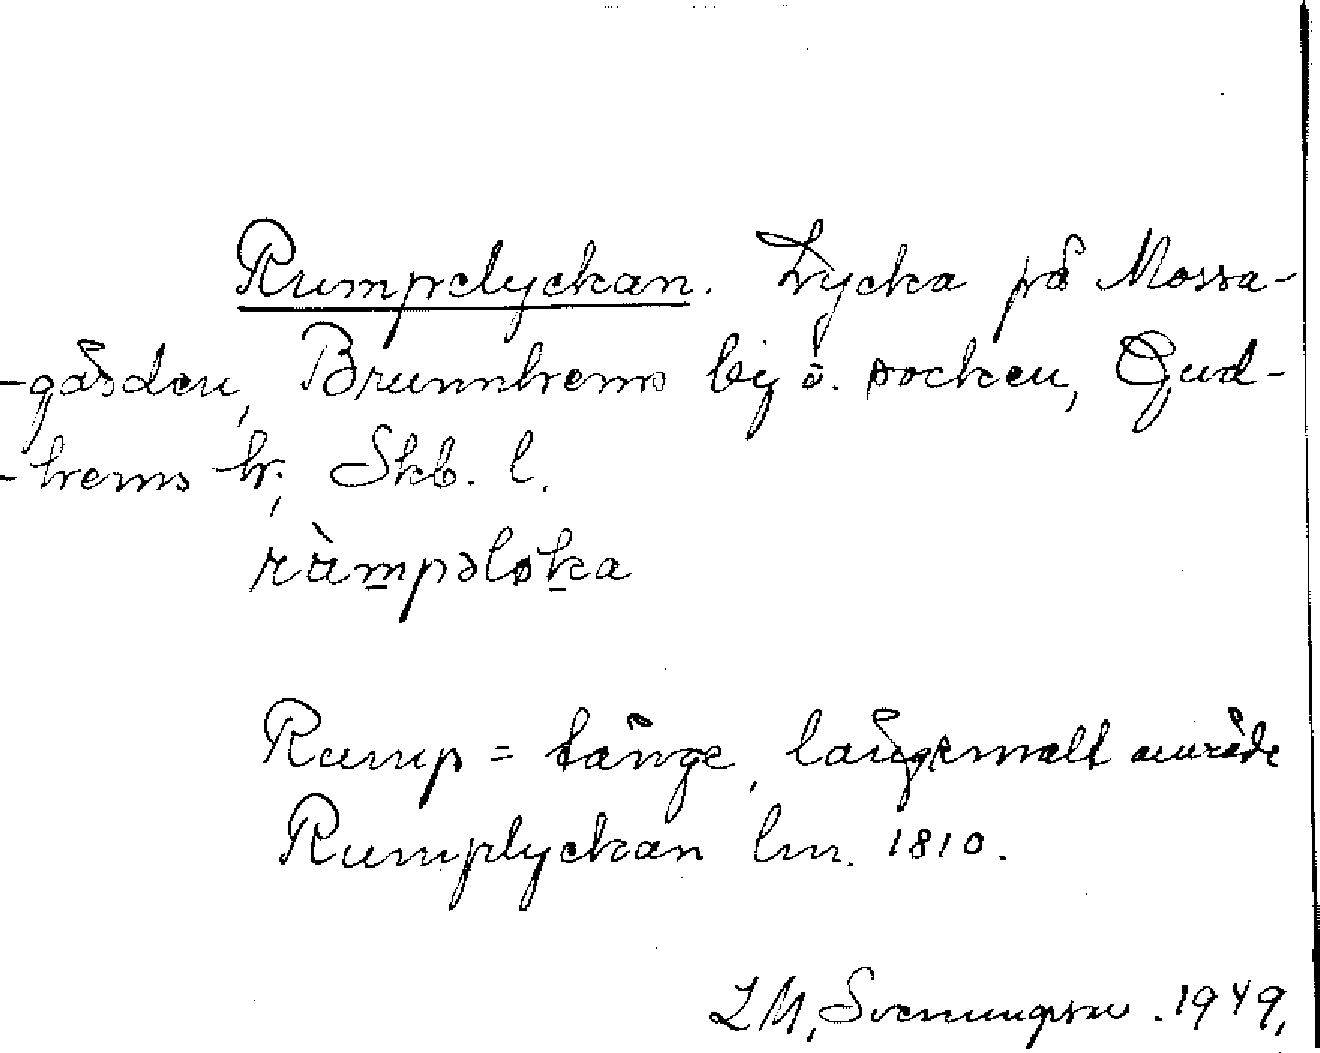 Rumpelyckan. Lycka på Mossa-
-gården, Brunnhems by o. socken, Gud-
-hems hr, Skb. l.
ràmpəløka
Rump = tånge, långsmalt område
Rumplyckan lm. 1810.
L M, Svenungsson. 1949,